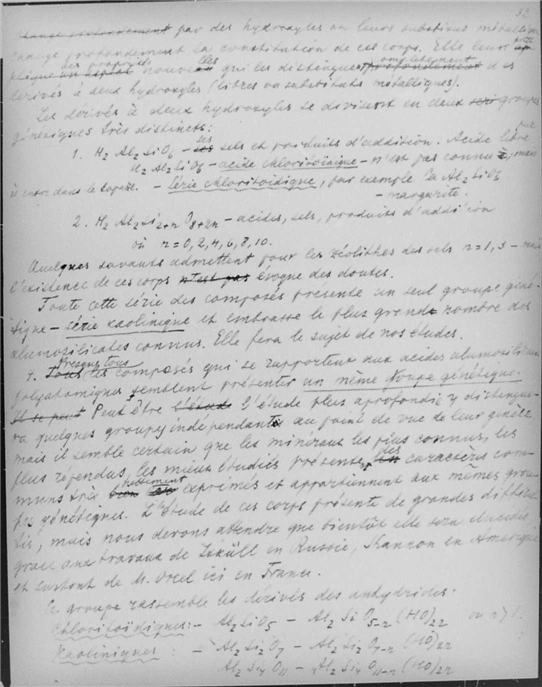 32
par des hydroxyles ou leurs substituts métalliques
change profondément la constitution de ces corps. Elle leur
des propriétés nouvelles qui les distinguent complètement des
dérivés à deux hydroxyles (libres ou substituts métalliques).
Les dérivés à deux hydroxyles se divisent en deux groupes
génétiques très distincts:
1. H2 Al2 SiO6 – les sels et produits d'addition. Acide libre
H2 Al2 SiO6 – acide chloritoïdique – n'est pas connu, mais
il entre dans le topaze. – Série chloritoïdique, par exemple Ca Al2 SiO6
– margarite.
2. H2 Al2 Si2+n O8+2n – acides, sels, produits d'addition
où n=0,2,4,6,8,10.
Quelques savants admettent pour les zéolithes des sels n=1,3 – mais
l'existence de ces corps n'est pas évoque des doutes.
Toute cette série des composés présente un seul groupe géné-
tique – série kaolinique et embrasse le plus grand nombre des
alumosilicates connus. Elle fera le sujet de nos études.
Presque tous
+. Tous les composés qui se rapportent aux acides alumosiliciques
polyatomiques semblent présenter un même groupe génétique.
Il se peut Peut être l'étude L'étude plus approfondie y distingue-
ra quelques groupes indépendants au point de vue de leur genèse
mais il semble certain que les mineraux les plus connus, les
plus répendus, les mieux étudiés présentent des caractères com-
muns très nettement exprimés et appartiennent aux mêmes grou-
pes génétiques. L'étude de ces corps présente de grandes difficul-
tés, mais nous devons attendre que bientôt elle sera élucidée
grace aux travaux de en Russie, en Amerique
et surtout de M. Orcel ici en France.
Ce groupe rassemble les dérivés des anhydrides:
Chloritoïdiques: – Al2 SiO5 – Al2 Si O5-n (HO)2n où n⩾1.
Kaoliniques: – Al2 Si2 O7 – Al2 Si2 O7-n (HO)2n
Al2 Si4 O11 – Al2 Si4 O11-n (HO)2n